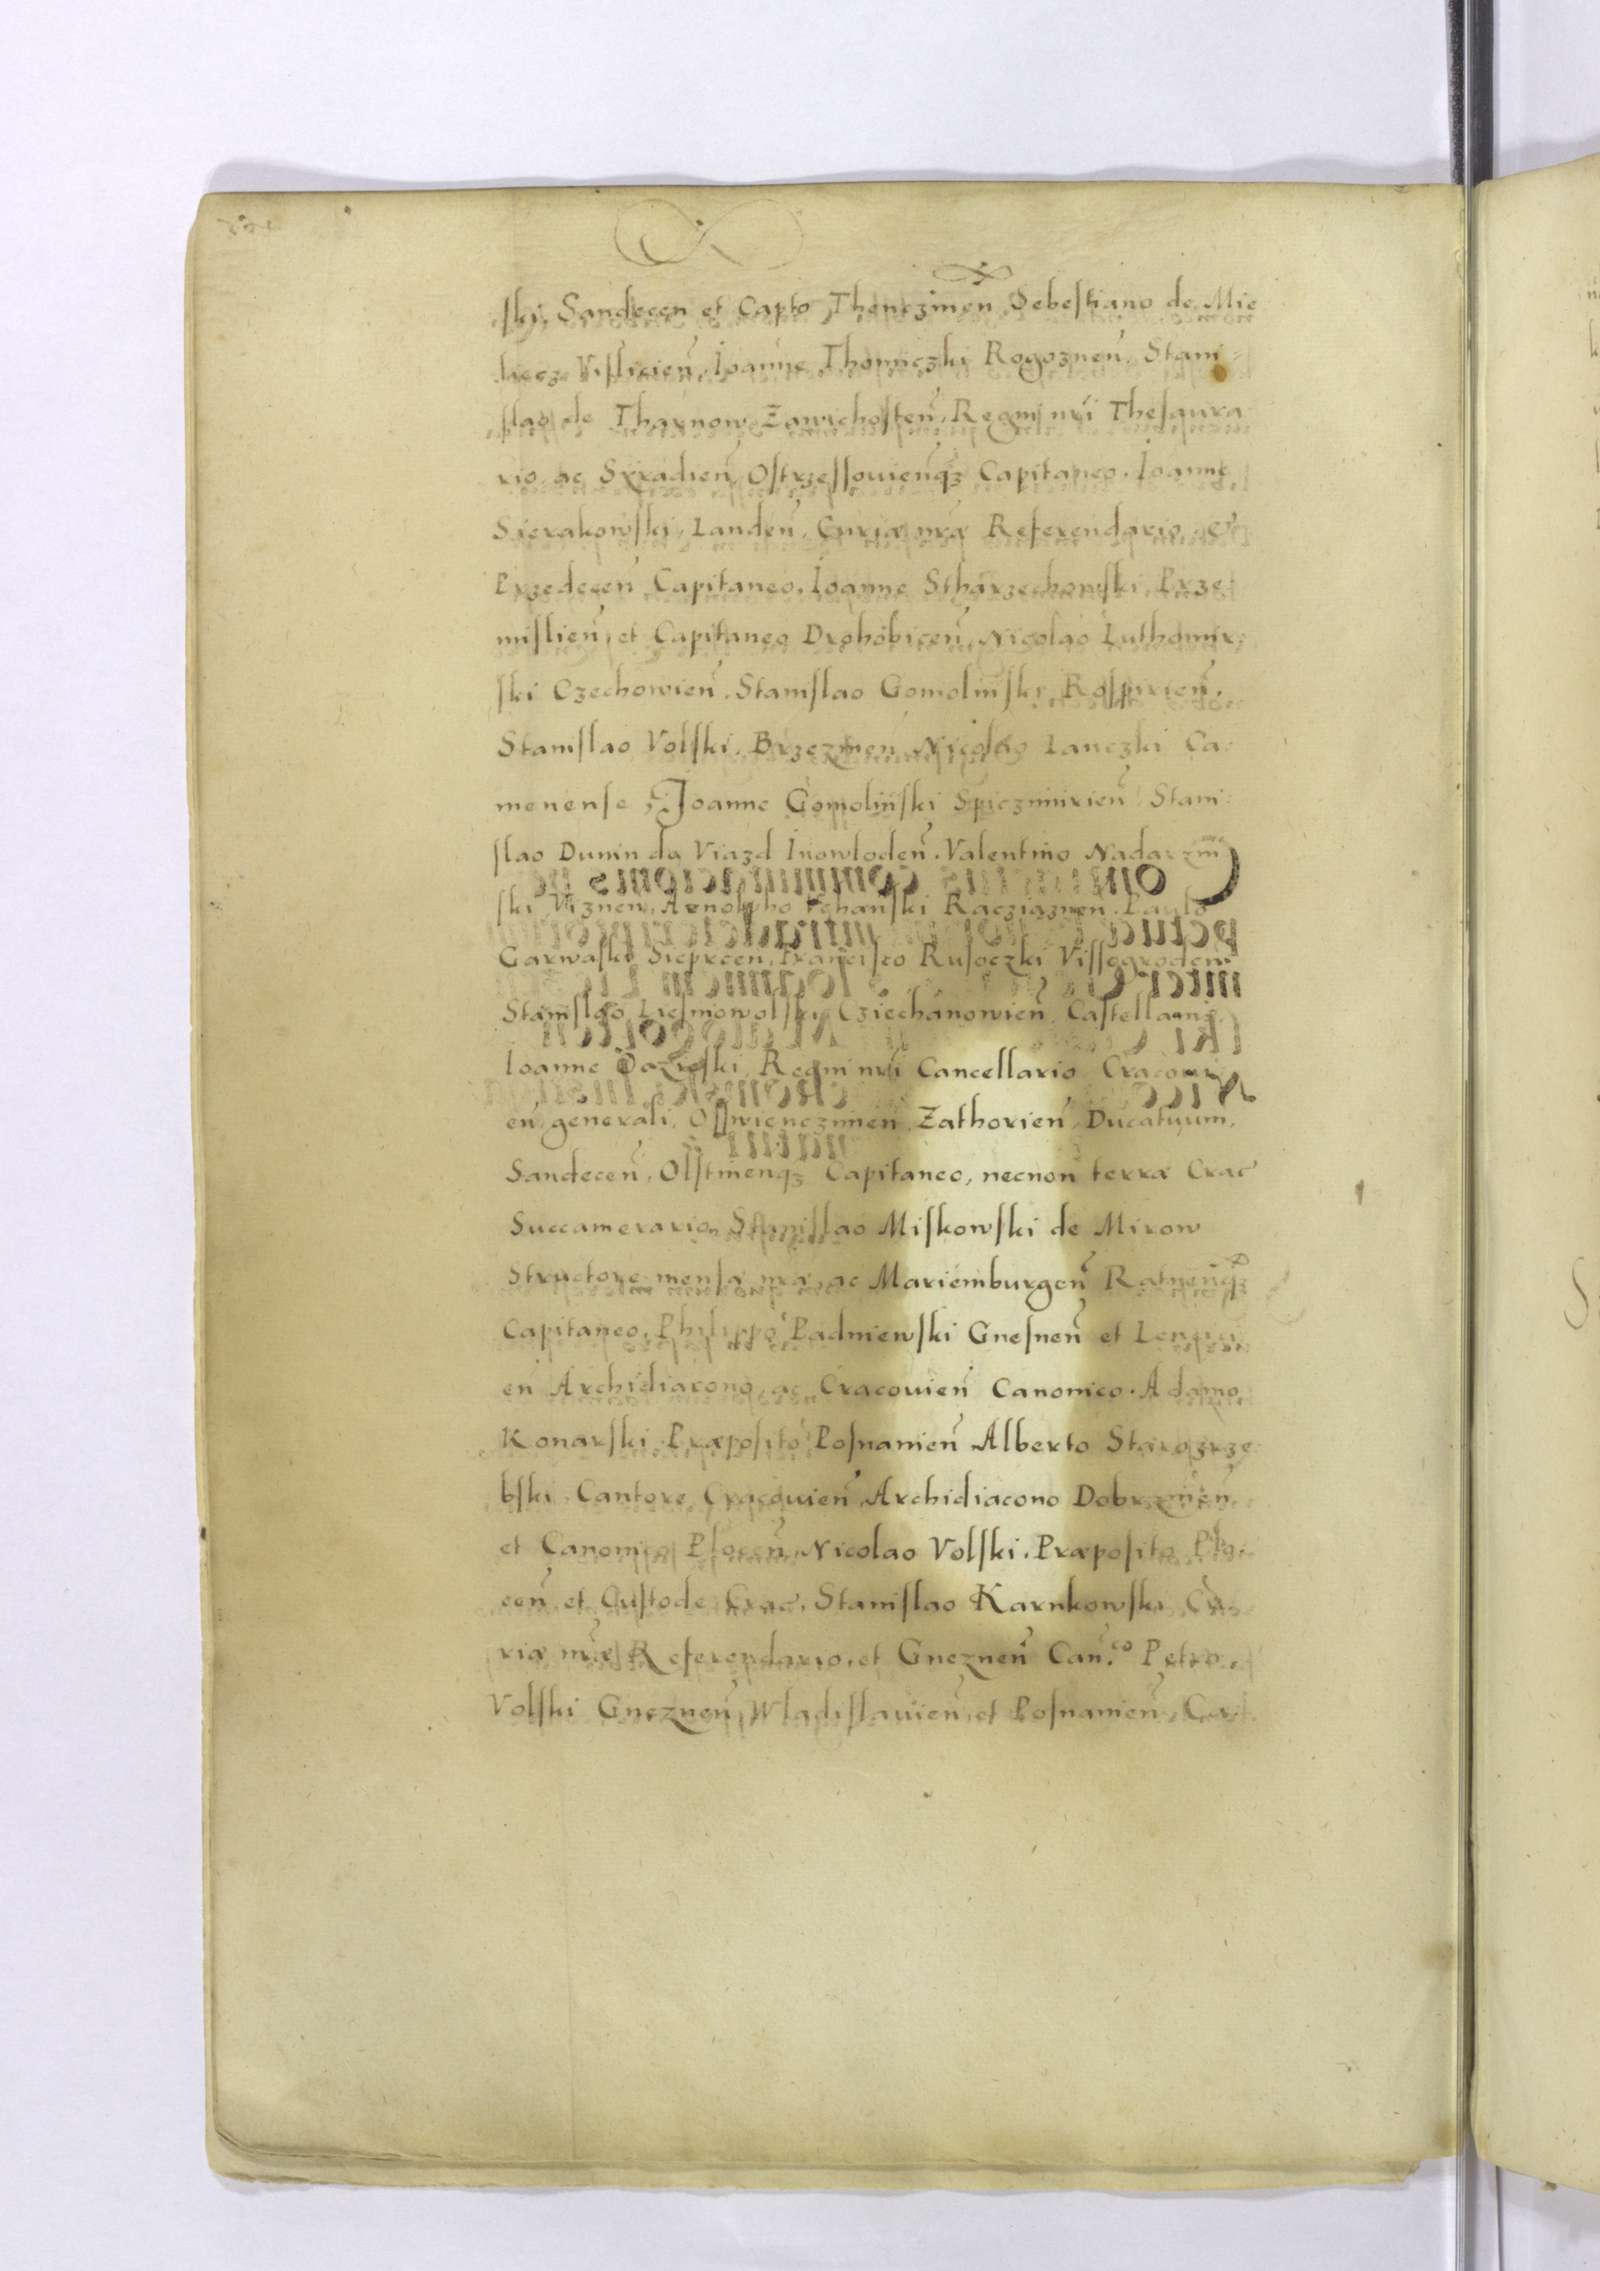 ski, Sandecen et Capto Thenczinen, Sebestiano de Mie
lecz Vislicien̄, Ioanne Thomiczki Rogoznen̄, Stani-
slao de Tharnow Zawichosten̄, Regni nr̄i Thesaura
rio, ac Syradien̄ Ostrzessouien̄qȝ Capitaneo, Ioanne
Sierakowski, Landen̄, Curiæ nræ Referendario, et
Przedecen̄ Capitaneo, Ioanne Stharzechowski, Prze-
mislien̄, et Capitaneo Drohobicen̄, Nicolao Luthomir-
ski Czechowien̄, Stanislao Gomolinski Rospirien̄,
Stanislao Volski, Brzezinen̄, Nicolao Lanczki Ca-
menense, Ioanne Gomolinski Spiczimirien̄, Stani-
slao Dunin da Viazd Inowloden̄, Valentino Nadarzin
ski Viznen̄, Arnolpho Vchanski Racziaznen̄, Paulo
Garwaski Sieprcen̄, Francisco Rusoczki Vissogroden̄
Stanislao Liesniowolski Cziechanowien̄, Castellanis,
Ioanne Oczieski, Regni nr̄i Cancellario, Cracoui
en̄ generali, Osswienczinen̄, Zathorien̄, Ducatuum,
Sandecen̄, Olstinenqȝ Capitaneo, necnon terræ Crac
Succamerario, Stanislao Miskowski de Mirow
Structore mensæ nræ, ac Mariemburgen̄ Ratnen̄qȝ
Capitaneo, Philippo Padniewski Gnesnen̄ et Lencici
en̄ Archidiacono, ac Cracouien̄ Canonico. Adamo
Konarski Præposito Posnanien̄ Alberto Starozrze
bski, Cantore Cracouien̄ Archidiacono Dobrzinen̄,
et Canonico Plocen̄, Nicolao Volski, Præposito Plo-
cen̄ et Custode Crac, Stanislao Karnkowski Cu-
riæ nræ Referendario, et Gneznen̄ Can.co Petro
Volski Gneznen̄, Wladislauien̄, et Posnanien̄,